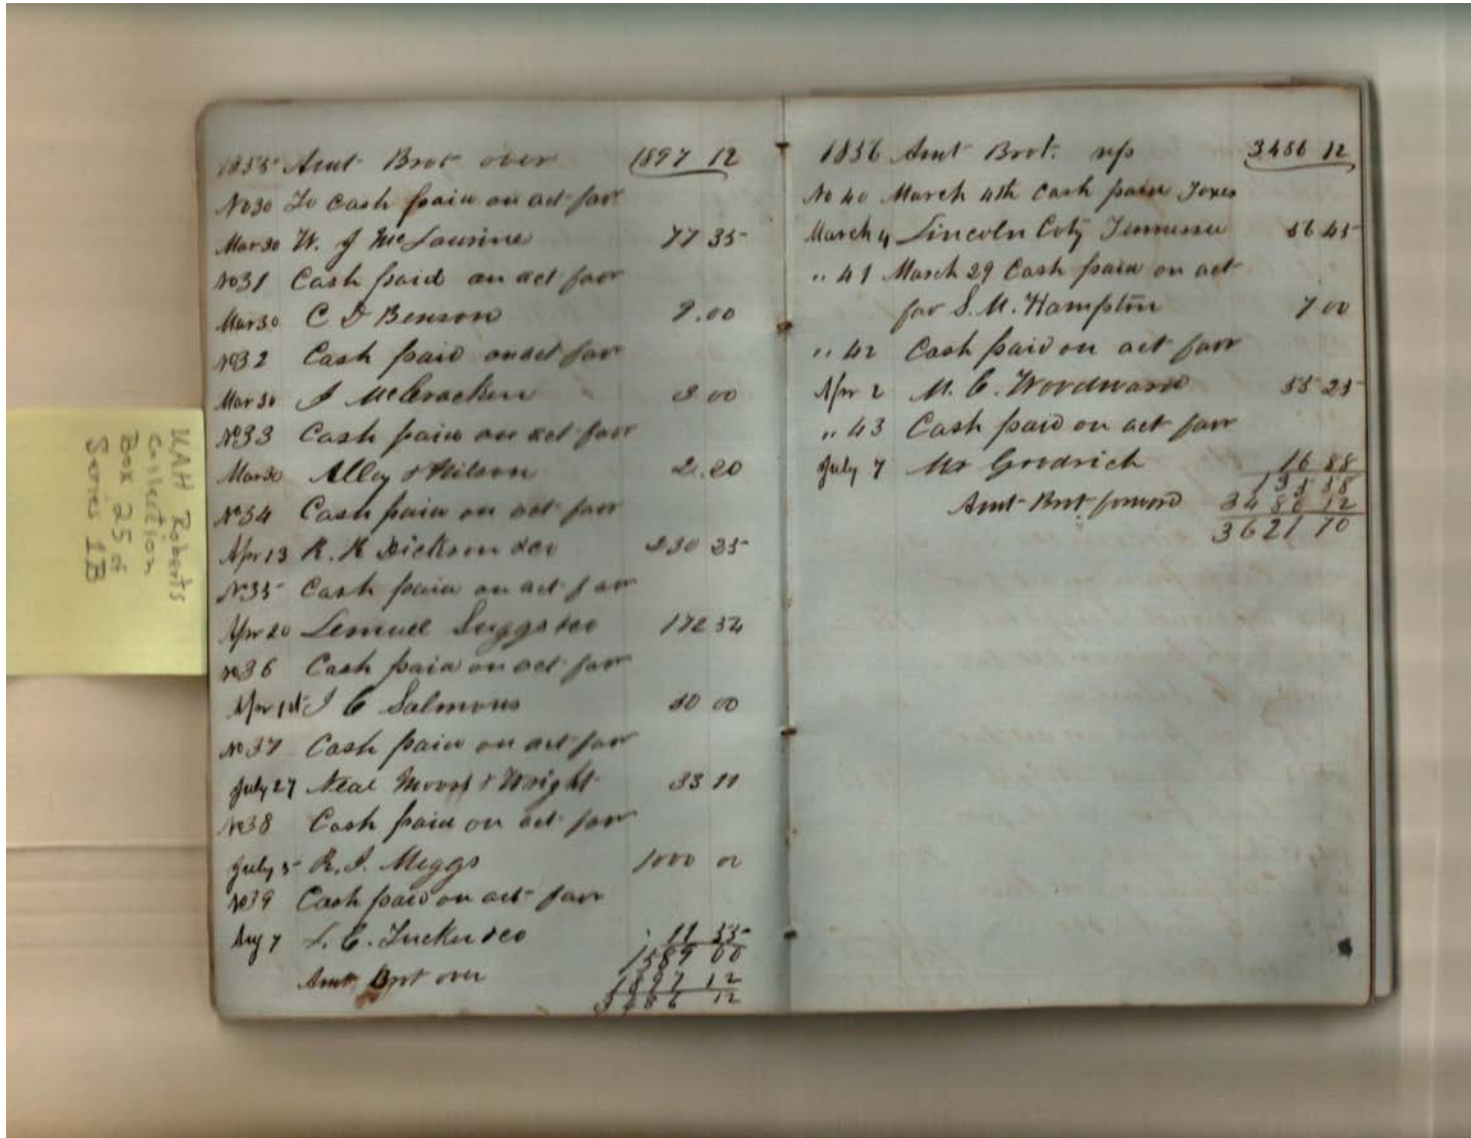 UAH Roberts
Collection
Box 25 of
Series 1B
1855 Amt Brot over 1897 12
No30 To Cash paid on act for
Mar30 W. J McLaurine 77 35
No31 Cash paid on act for
Mar30 C D Benson 9.00
No32 Cash paid on act for
Mar30 J McCracken 3 00
No33 Cash paid on act for
Mar30 Alley & Wilson 2.20
No34 Cash paid on act for
Apr13 R. H Dickson &co 230 25
No35 Cash paid on act for
Apr20 Lemuel Suggs &co 172 34
No36 Cash paid on act for
Apr 1st J C Salmons 50 00
No37 Cash paid on act for
July27 Neal Moore & Wright 33 11
No38 Cash paid on act for
July 5 R. J. Meggs 1000 00
No39 Cash paid on act for
Aug 7 L. C. Tucker &co 11 55
1589 00
Amt Brot over 1897 12
3486 12
1856 Amt Brot. up 3486 12
No 40 March 4th Cash paid Taxes
March 4 Lincoln Coty Tennessee 56 45
,, 41 March 29 Cash paid on act
for S. M. Hampton 7 00
,, 42 Cash paid on act for
Apr 2 M. C. Woodward 55 25
,, 43 Cash paid on act for
July 7 Mr Goodrich 16 88
135 58
Amt Brot forward 3486 12
3621 70